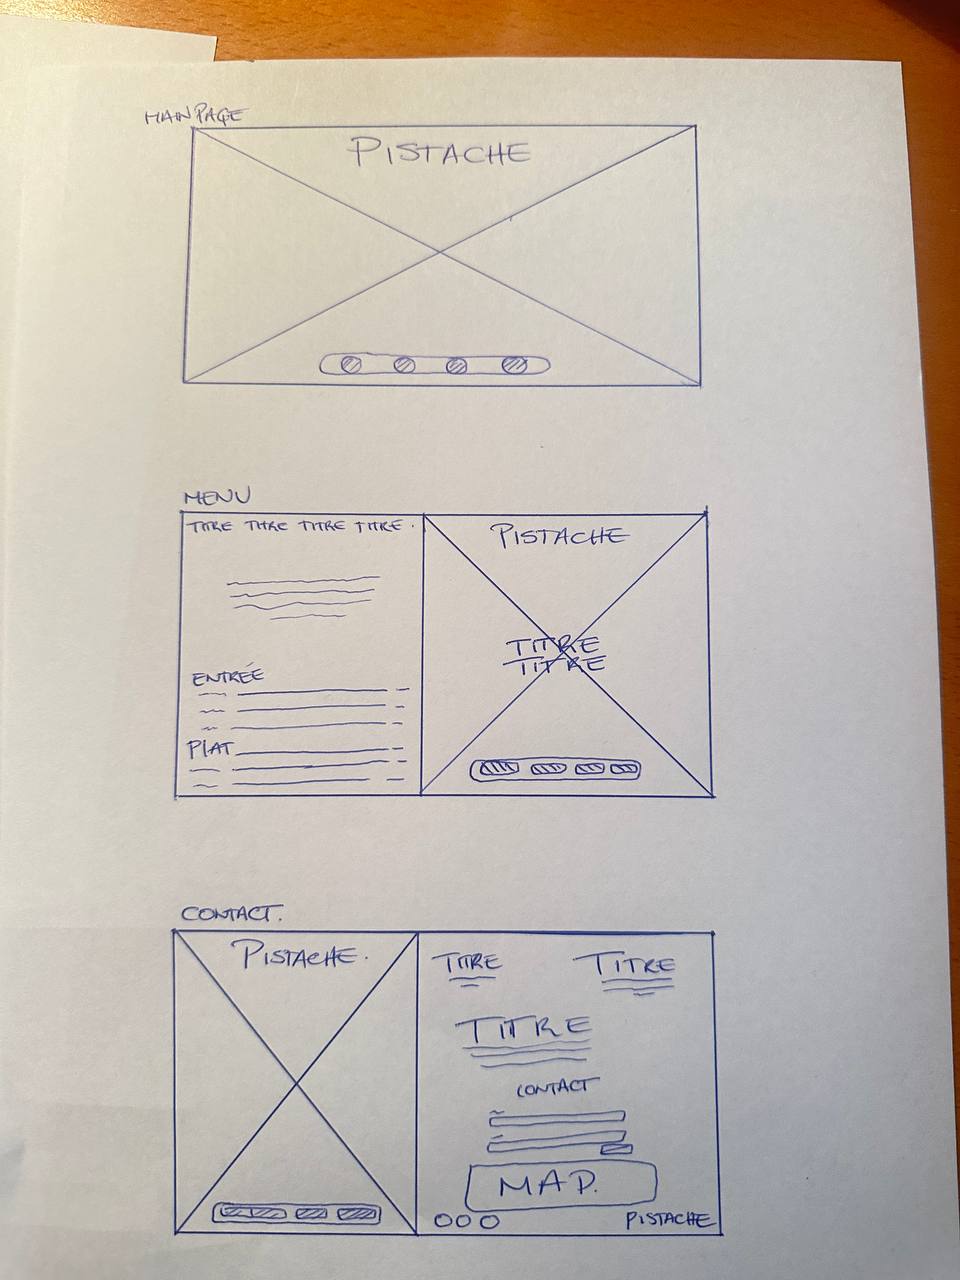 MAIN PAGE
PISTACHE
MENU
TITRE TITRE TITRE TITRE.
PISTACHE
TITRE
TITRE
ENTRÉE
PLAT
CONTACT.
PISTACHE.
TITRE
TITRE
TITRE
CONTACT
MAP.
PISTACHE